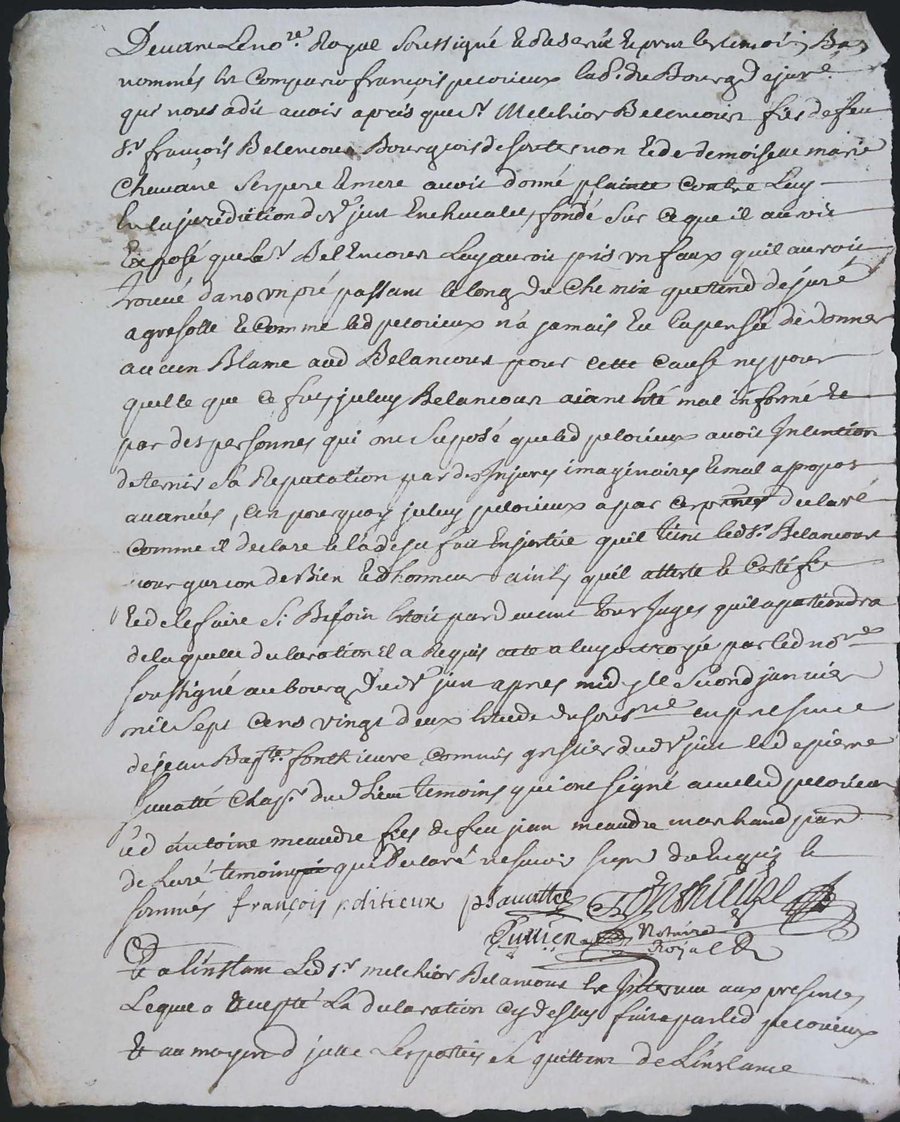 Devant Le no.re Royal Soussigné et les témoins Bas
nommés est Comparu françois peloueux lab.r du Bourg de juré
qui nous a dit avoir apris que s.r Melchior Belencour fils de feu
s.r françois Belencour Bourgeois de et de demoiselle marie
ses pere et mere avoit donné plainte Contre Luy
En la juridiction de s.t just En chevalet, fondé Sur Ce que il avoit
Exposé que Le s.r BelEncour Luy avoit pris un faux qu'il avoit
trouvé dans un pré passant le long du Chemin que tend de juré
a gresolle et Comme led peloueux n'a jamais Eu la pensée de donner
aucun Blame aud Belancour pour cette Cause ny pour
quelle que Ce fut, jceluy Belancour aiant été mal informé
par des personnes qui ont Suposé que led peloueux avoit Intention
de ternir Sa Reputation par des Injures imaginaires et mal a propos
avancées, C'est pourquoy jceluy peloueux a par Ces presentes declaré
Comme il declare et l'a deja fait En justice qu'il tient led s.r Belancour
pour garcon de Bien et d'honneur ainsy qu'il atteste et Certifie
et de le faire Si Besoin Etoit pardevant tous Juges qu'il apartiendra
de laquelle declaration il a Requis acte a luy octroyé par led no.re
soussigné au bourg dud s.t just apres midy le Second janvier
mil Sept Cens vingt deux Etude du soussigné en presence
de jean Bap.te fonthieure Commis greffier dud s.t just et de pierre
Savatté dud Lieu temoins qui ont Signé avec led peloueux
et antoine meaudre fils de feu jean meaudre marchand
de Luré temoin qui declaré ne savoir signer de ce Enquis et
sommés françois peloueux pSavatte Fonthieure
Jullien Notaire
Royal
Et a l'instant Led s.r melchior Belancour est Intervenu aux presentes
Lequel a accepté La declaration Cy dessus faite par led peloueux
Et au moyen d'jcelle Les parties Se quittent de L'instance